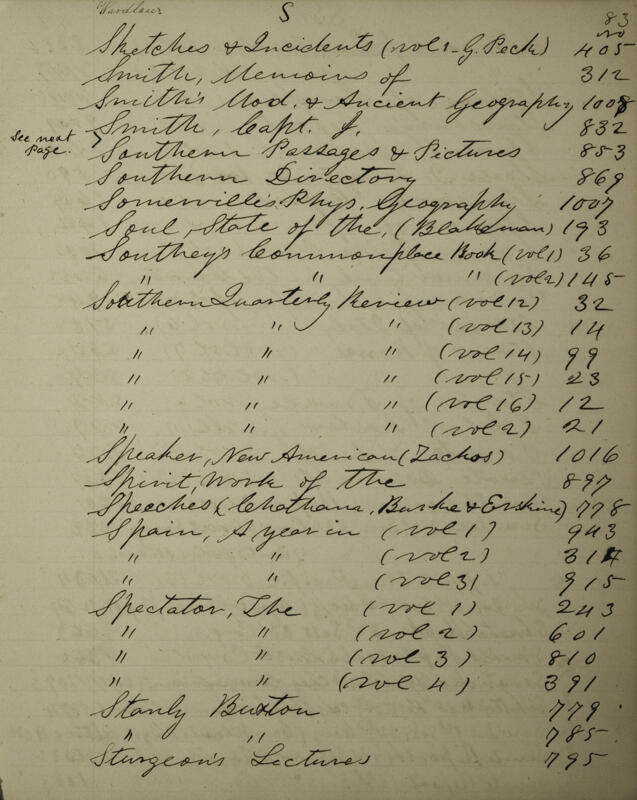 Wardlaw S 83
no
Sketches & Incidents (vol 1 - G. Peck) 405
Smith, Memoirs of 312
Smith's Mod. & Ancient Geography 1008
Smith, Capt. J. 832
See next page. } Southern Passages & Pictures 853
Southern Directory 869
Somerville's Phys. Geography 1007
Soul, State of the, (Blakeman) 193
Southey's Commonplace Book (vol 1) 36
" " " (vol 2) 145
Southern Quarterly Review (vol 12) 32
" " " (vol 13) 14
" " " (vol 14) 99
" " " (vol 15) 23
" " " (vol 16) 12
" " " (vol 2) 21
Speaker, New American (Zachos) 1016
Spirit, Work of the 897
Speeches (Chatham, Burke & Erskine) 778
Spain, A year in (vol 1) 943
" " (vol 2) 314
" " (vol 3) 915
Spectator, The (vol 1) 243
" " (vol 2) 601
" " (vol 3) 810
" " (vol 4) 391
Stanly Buxton 779
" " 785
Sturgeon's Lectures 795